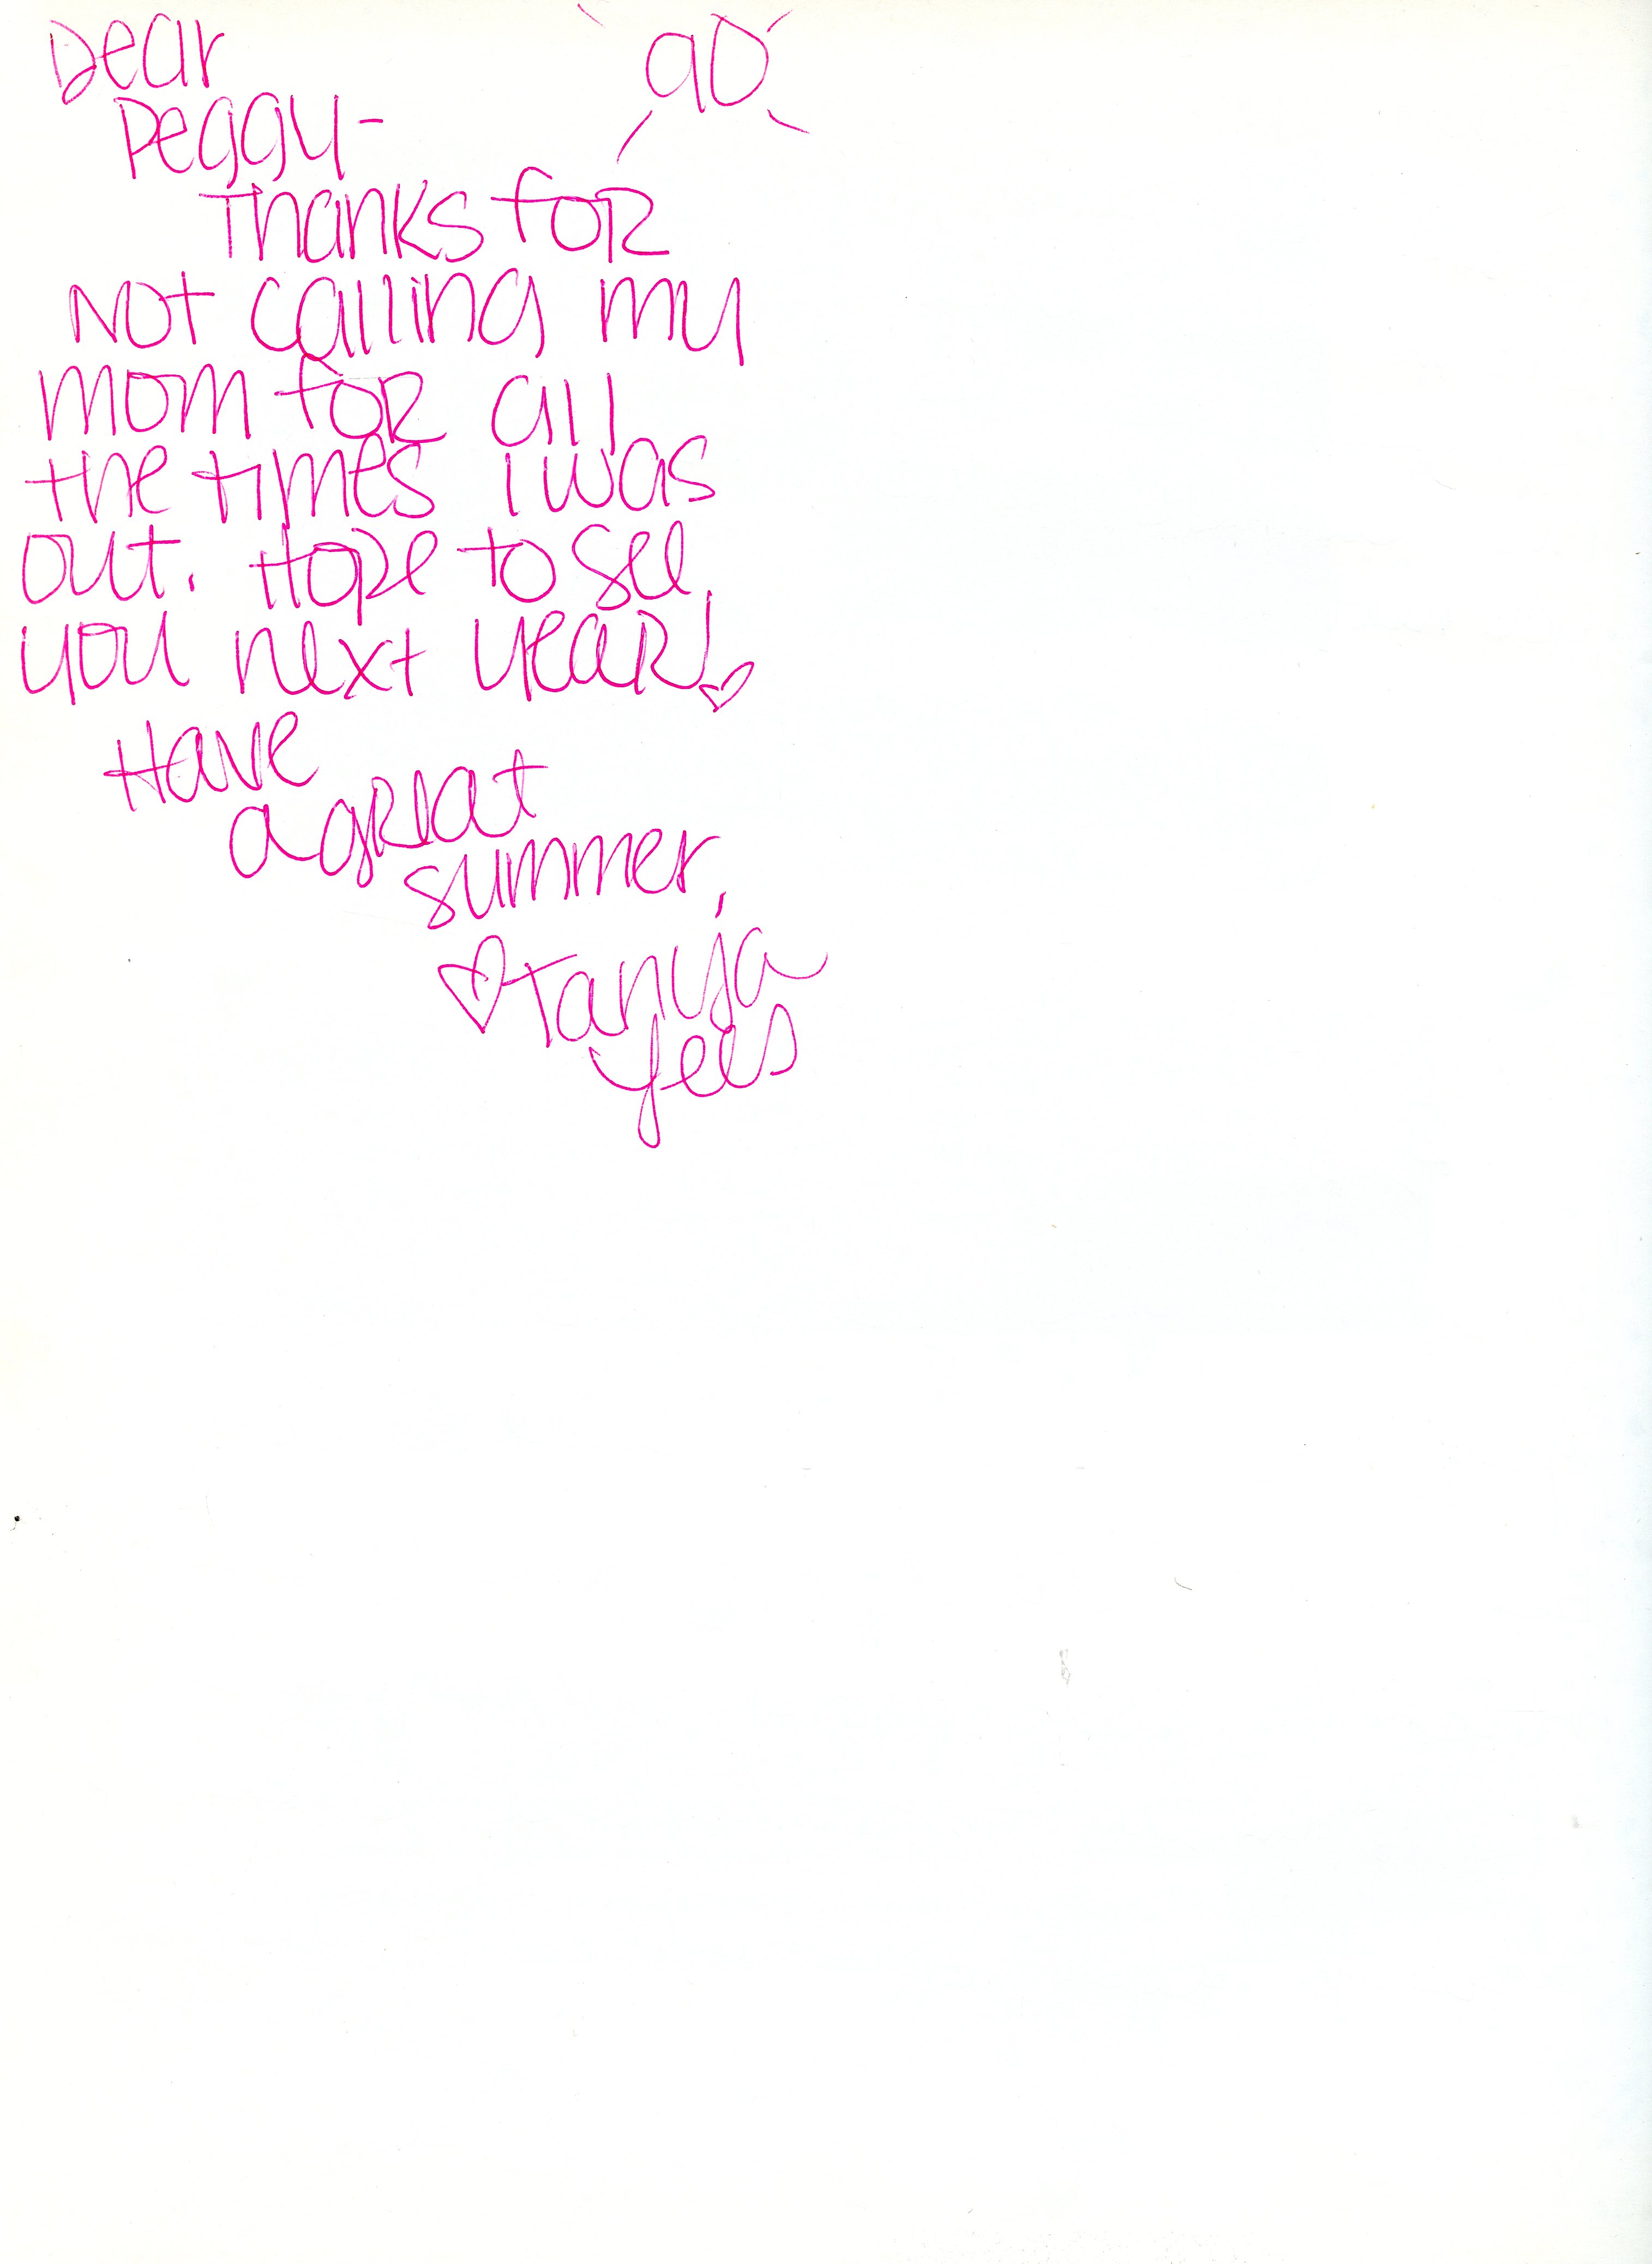 Dear
90
Peggy-
Thanks for
Not calling my
mom for all
the times i was
out. Hope to see
you next year!
Have
a great
summer,
♡Tanija